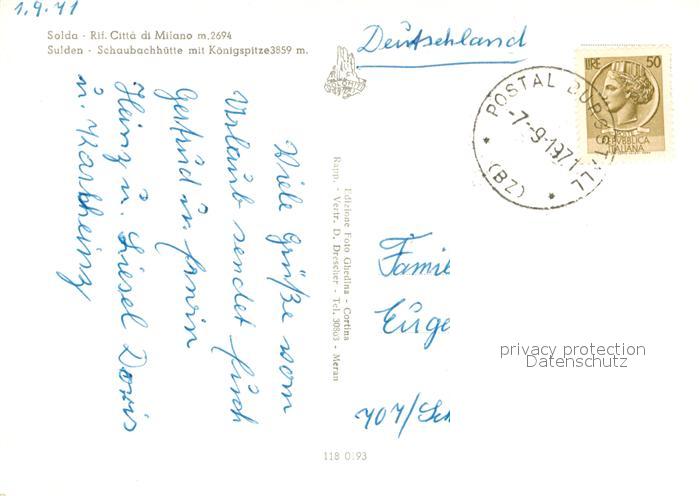 1.9.71
Solda - Rif. Città di Milano m.2694
Sulden - Schaubachhütte mit Königspitze3859 m.
Deutschland
LIRE 50
REPUBBLICA
ITALIANA
POSTAL
-7-9-1971
(BZ)
Viele Grüße vom
Urlaub sendet Euch
Gertrud u. Erwin
Heinz u. Liesel Doris
u. Karlheinz
Edizione Foto Ghedina - Cortina
Rapp. - Vertr. D. Drescher - Tel. 30863 - Meran
Famil
Euge
707/Sch
privacy protection
Datenschutz
118 0193